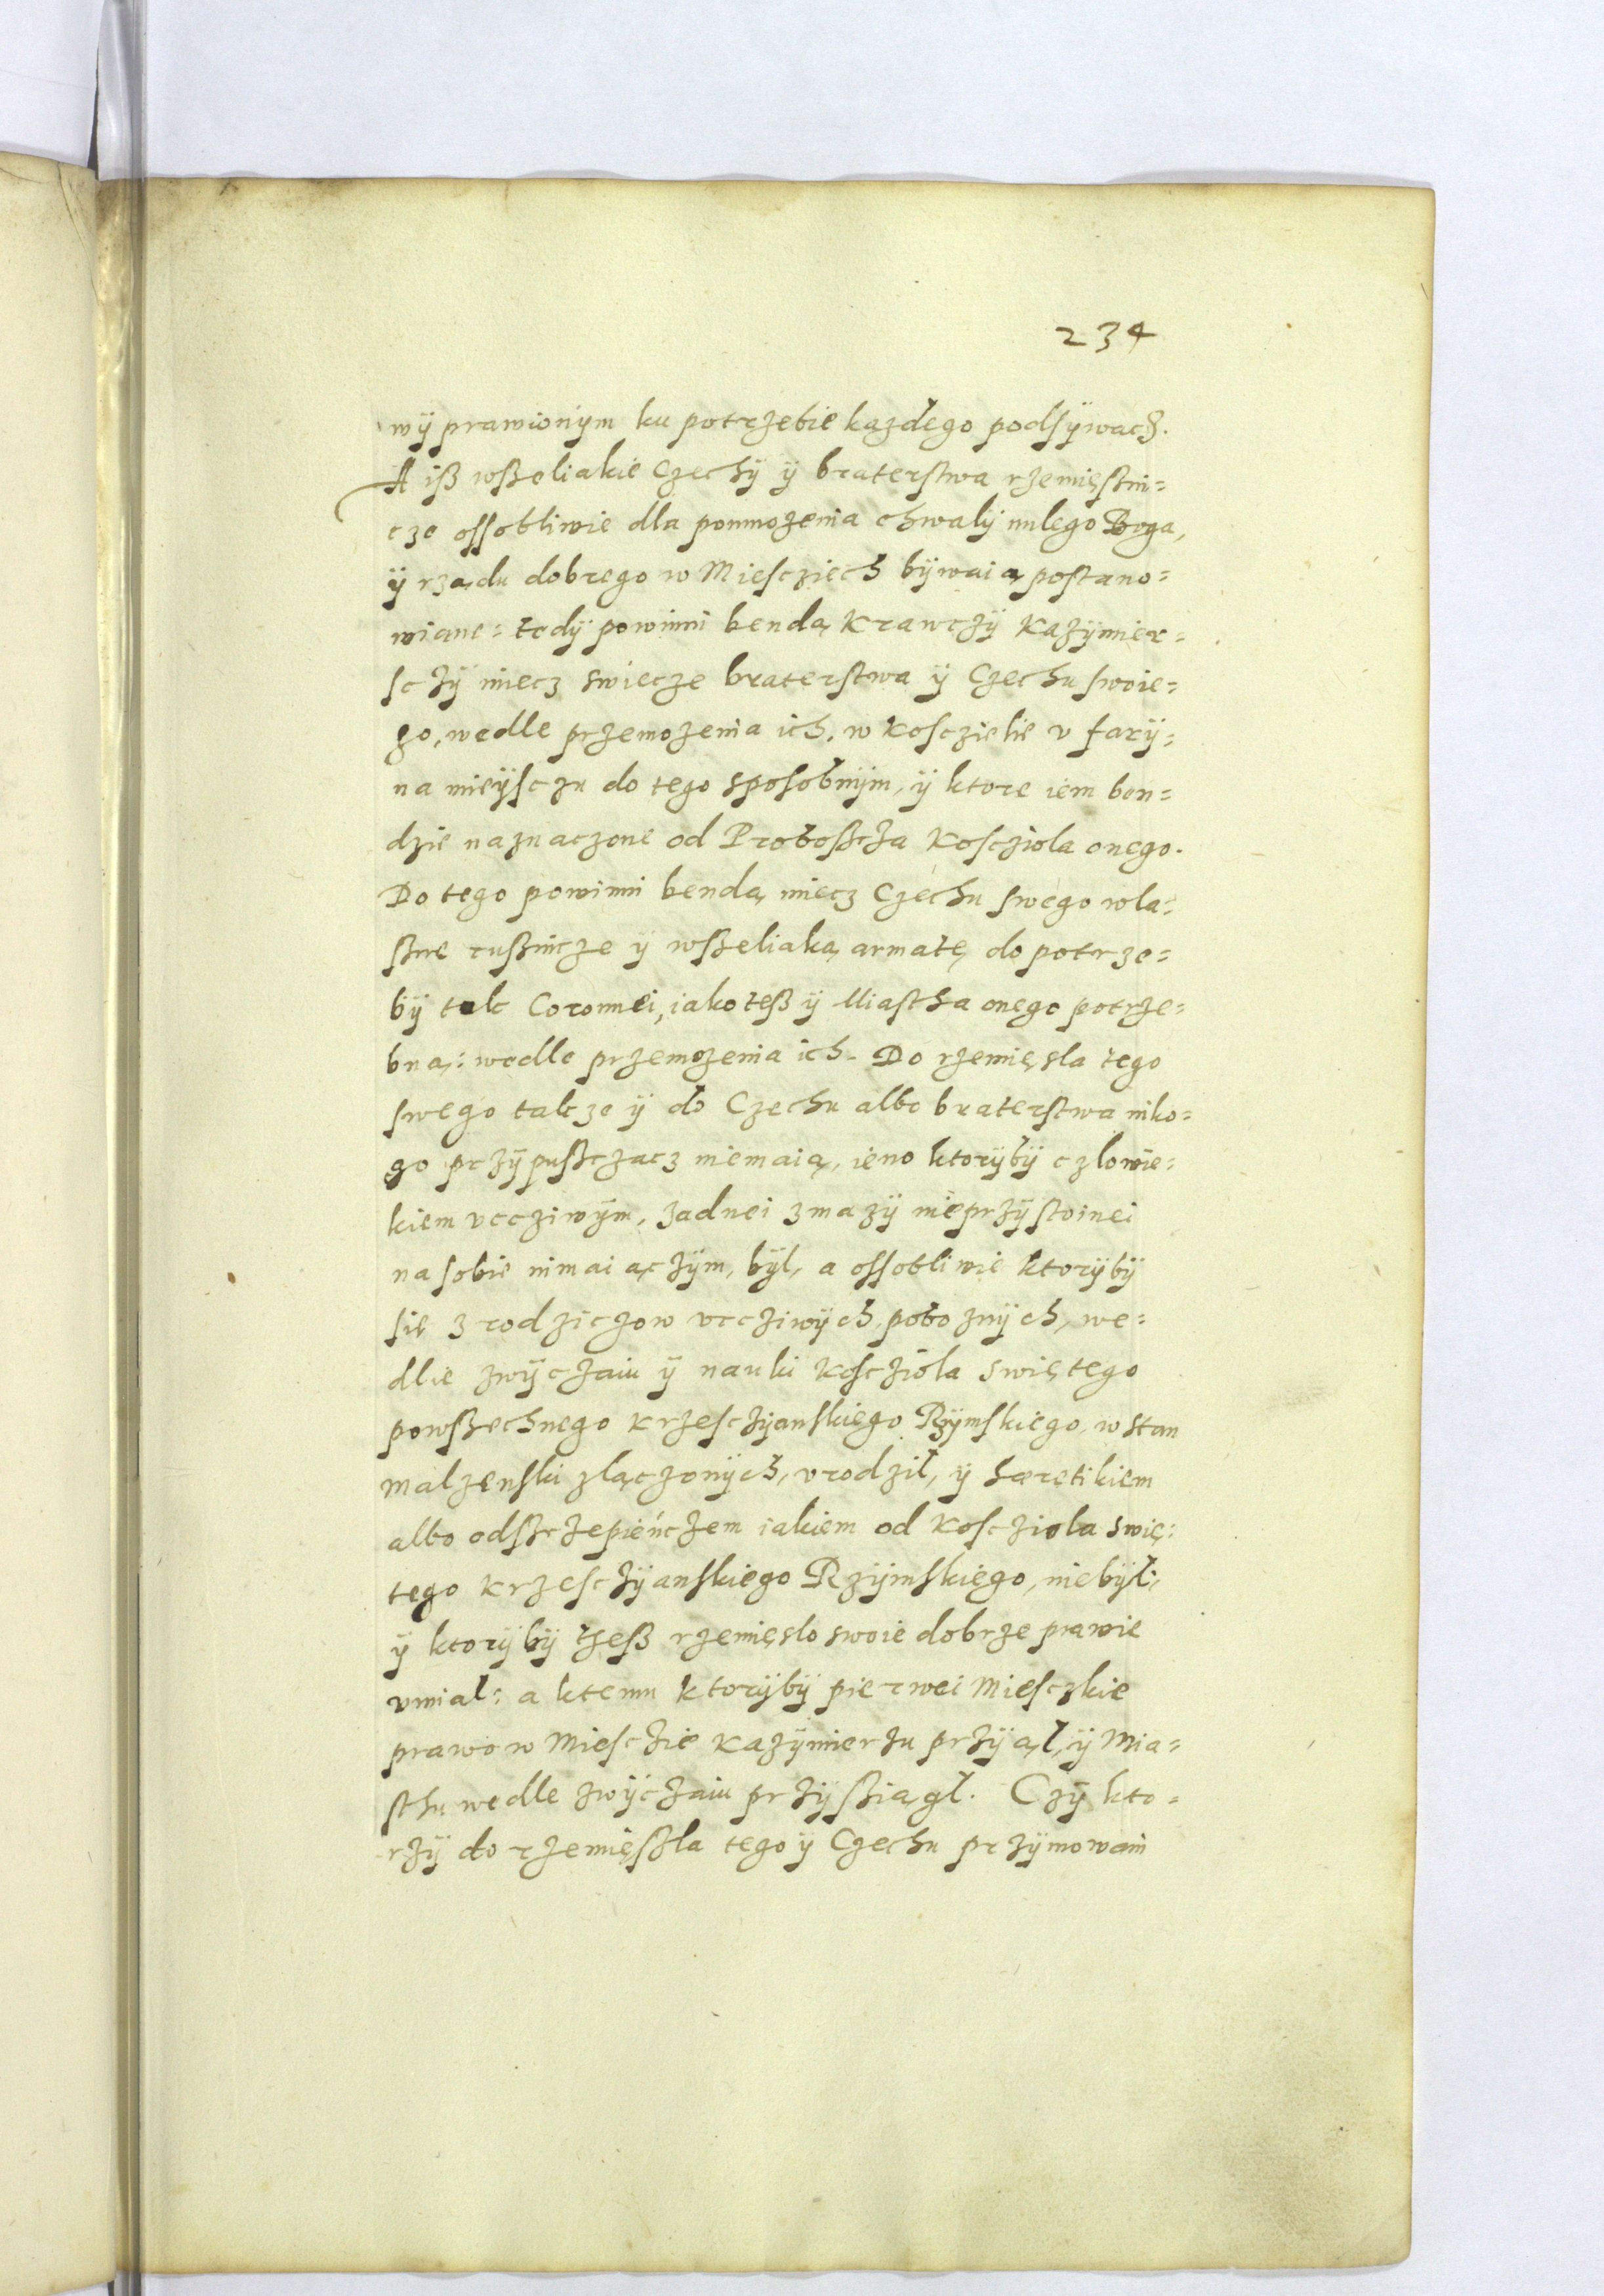 234
wÿprawionÿm ku potrzebie kazdego podsÿwacz.
A iß wßeliakie Czechÿ ÿ braterstwa rzemięstni=
cze ossobliwie dla pomnożenia chwalÿ milego Boga,
ÿ rządu dobrego w Miescziech bÿwaią postano=
wiane: tedÿ powinni bendą Krawczÿ Kazÿmier=
sczÿ miecz swiecze braterstwa ÿ Czechu swoie=
go, wedle przemożenia ich, w Kosczielie v farÿ,
na mieÿsczu do tego sposobnÿm, ÿ ktore iem ben=
dzie naznaczone od Proboßcza Kosczioła onego.
Do tego powinni bendą miecz Czechu swego wla=
ßne rußnicze ÿ wßeliaką armatę do potrze=
bÿ tak Coronnei, iako teß ÿ Miastha onego potrze=
bną: wedle przemozenia ich. Do rzemięsla tego
swego takze ÿ do Czechu albo braterstwa niko=
go przÿpußczacz niemaią, ieno ktorÿbÿ czlowie=
kiem vccziwÿm, zadnei zmazÿ nieprzÿstoinei
na sobie nimaiączÿm, bÿl, a ossobliwie ktorÿbÿ
sie z rodziczow vccziwÿch, pobożnÿch, we=
dlie zwÿczaiu ÿ nauki Kosczioła swiętego
powßechnego krzesczÿanskiego Rzÿmskiego, w stan
malzenski zlączonÿch, vrodził, ÿ hæretikiem
albo odßczepieńczem iakiem od Kosczioła swię=
tego krzesczÿanskiego Rzÿmskiego, nie bÿł,
ÿ ktorÿbÿ tzeß rzemięslo swoie dobrze prawie
vmiał: a ktemu ktorÿbÿ pierwei Miesczkie
prawo w Miesczie Kazÿmierzu przÿiął, ÿ Mia=
sthu wedle zwÿczaiu przÿßiągł. Czÿ kto=
rzÿ do rzemięßla tego ÿ Czechu przÿmowani